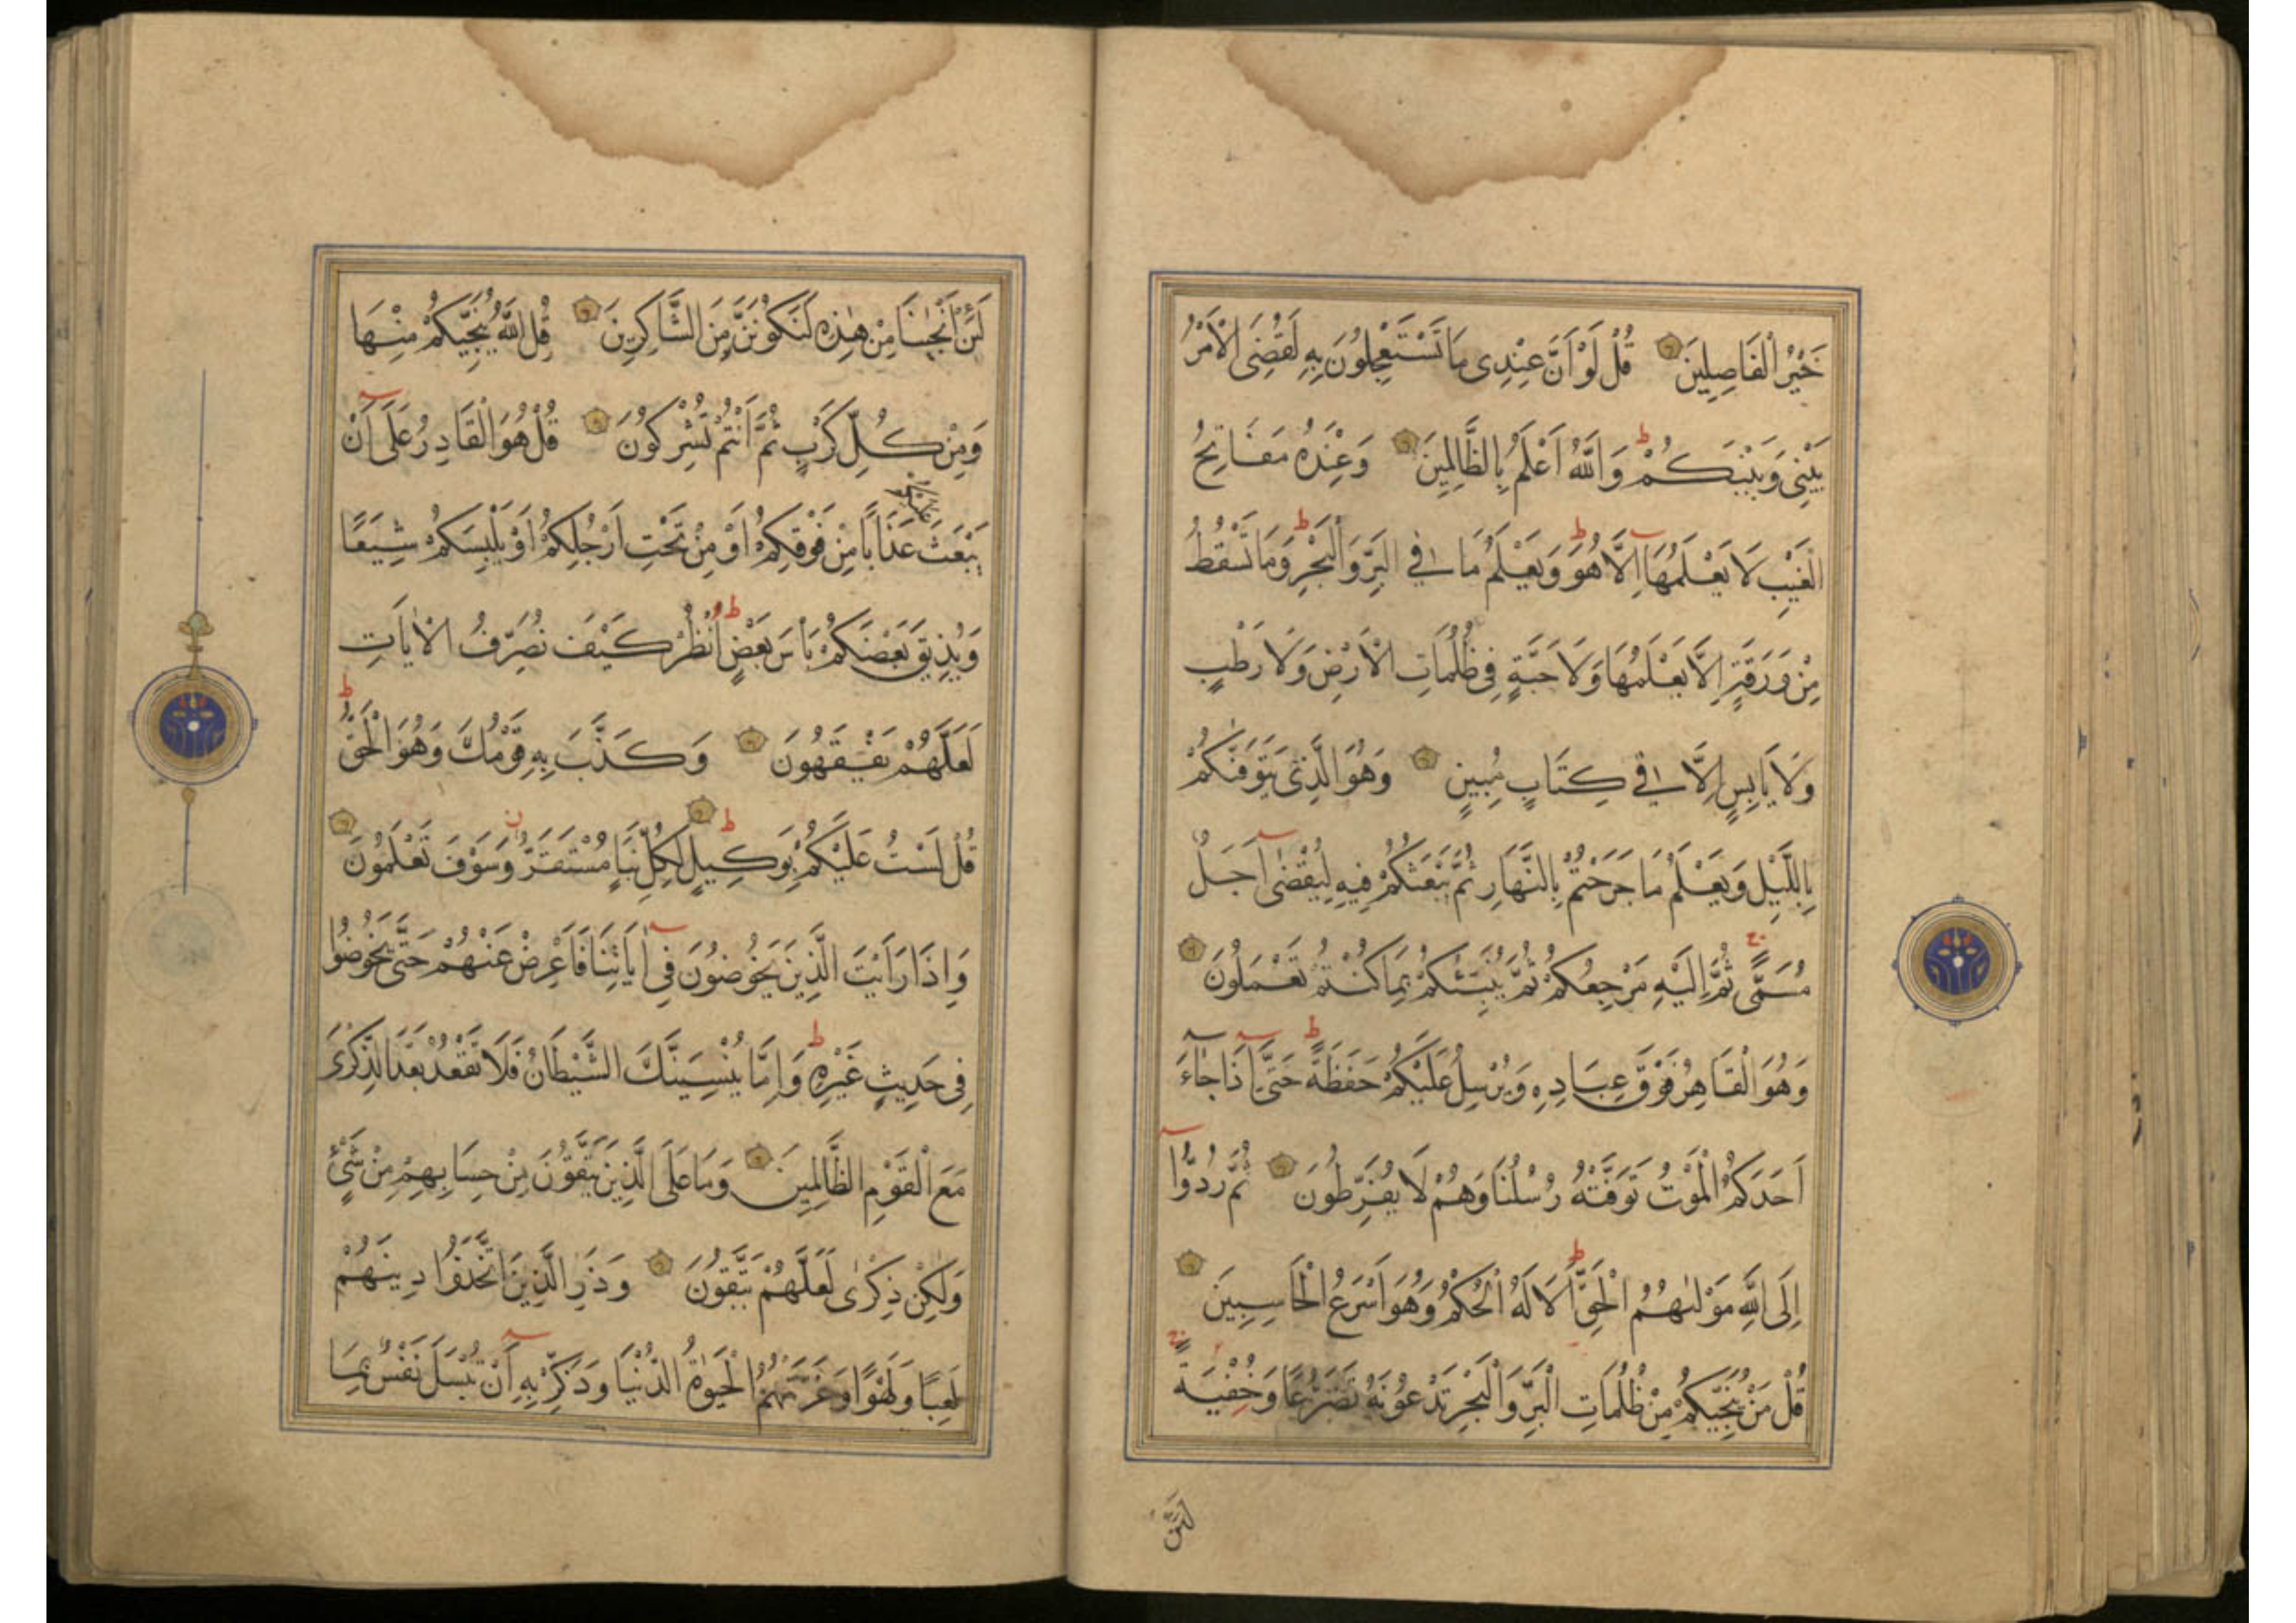 خَيْرُ الْفَاصِلِينَ قُلْ لَوْ اَنَّ عِنْدِى مَا تَسْتَعْجِلُونَ بِهِ لَقُضِىَ الْاَمْرُ
بَيْنِى وَبَيْنَكُمْ وَاللّٰهُ اَعْلَمُ بِالظَّالِمِينَ وَعِنْدَهُ مَفَاتِحُ
الْغَيْبِ لَا يَعْلَمُهَا اِلَّا هُوَ وَيَعْلَمُ مَا فِى الْبَرِّ وَالْبَحْرِ وَمَا تَسْقُطُ
مِنْ وَرَقَةٍ اِلَّا يَعْلَمُهَا وَلَا حَبَّةٍ فِى ظُلُمَاتِ الْاَرْضِ وَلَا رَطْبٍ
وَلَا يَابِسٍ اِلَّا فِى كِتَابٍ مُبِينٍ وَهُوَ الَّذِى يَتَوَفّٰيكُمْ
بِاللَّيْلِ وَيَعْلَمُ مَا جَرَحْتُمْ بِالنَّهَارِ ثُمَّ يَبْعَثُكُمْ فِيهِ لِيُقْضٰى اَجَلٌ
مُسَمًّى ثُمَّ اِلَيْهِ مَرْجِعُكُمْ ثُمَّ يُنَبِّئُكُمْ بِمَا كُنْتُمْ تَعْمَلُونَ
وَهُوَ الْقَاهِرُ فَوْقَ عِبَادِهِ وَيُرْسِلُ عَلَيْكُمْ حَفَظَةً حَتّٰى اِذَا جَاءَ
اَحَدَكُمُ الْمَوْتُ تَوَفَّتْهُ رُسُلُنَا وَهُمْ لَا يُفَرِّطُونَ ثُمَّ رُدُّوا
اِلَى اللّٰهِ مَوْلٰيهُمُ الْحَقِّ اَلَا لَهُ الْحُكْمُ وَهُوَ اَسْرَعُ الْحَاسِبِينَ
قُلْ مَنْ يُنَجِّيكُمْ مِنْ ظُلُمَاتِ الْبَرِّ وَالْبَحْرِ تَدْعُونَهُ تَضَرُّعًا وَخُفْيَةً
لَئِنْ
لَئِنْ اَنْجٰينَا مِنْ هٰذِهِ لَنَكُونَنَّ مِنَ الشَّاكِرِينَ قُلِ اللّٰهُ يُنَجِّيكُمْ مِنْهَا
وَمِنْ كُلِّ كَرْبٍ ثُمَّ اَنْتُمْ تُشْرِكُونَ قُلْ هُوَ الْقَادِرُ عَلٰى اَنْ
عَلَيْكُمْ
يَبْعَثَ عَذَابًا مِنْ فَوْقِكُمْ اَوْ مِنْ تَحْتِ اَرْجُلِكُمْ اَوْ يَلْبِسَكُمْ شِيَعًا
وَيُذِيقَ بَعْضَكُمْ بَأْسَ بَعْضٍ اُنْظُرْ كَيْفَ نُصَرِّفُ الْاٰيَاتِ
لَعَلَّهُمْ يَفْقَهُونَ وَكَذَّبَ بِهِ قَوْمُكَ وَهُوَ الْحَقُّ
قُلْ لَسْتُ عَلَيْكُمْ بِوَكِيلٍ لِكُلِّ نَبَأٍ مُسْتَقَرٌّ وَسَوْفَ تَعْلَمُونَ
وَاِذَا رَاَيْتَ الَّذِينَ يَخُوضُونَ فِى اٰيَاتِنَا فَاَعْرِضْ عَنْهُمْ حَتّٰى يَخُوضُوا
فِى حَدِيثٍ غَيْرِهِ وَاِمَّا يُنْسِيَنَّكَ الشَّيْطَانُ فَلَا تَقْعُدْ بَعْدَ الذِّكْرٰى
مَعَ الْقَوْمِ الظَّالِمِينَ وَمَا عَلَى الَّذِينَ يَتَّقُونَ مِنْ حِسَابِهِمْ مِنْ شَىْءٍ
وَلٰكِنْ ذِكْرٰى لَعَلَّهُمْ يَتَّقُونَ وَذَرِ الَّذِينَ اتَّخَذُوا دِينَهُمْ
لَعِبًا وَلَهْوًا وَغَرَّتْهُمُ الْحَيٰوةُ الدُّنْيَا وَذَكِّرْ بِهِ اَنْ تُبْسَلَ نَفْسٌ بِمَا